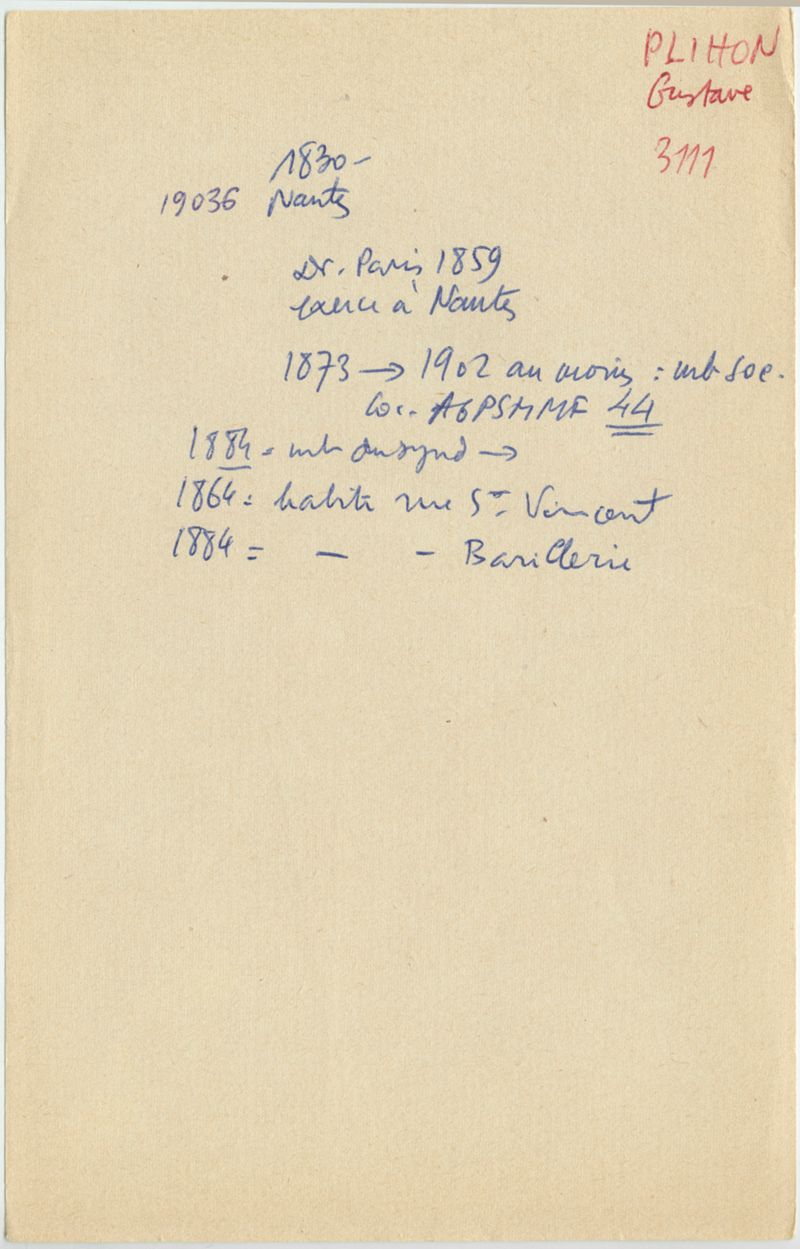 PLIHON
Gustave
3111
1830-
19036 Nantes
Dr. Paris 1859
exerce à Nantes
1873 → 1902 au moins : mb Soc.
Loc. AGPSMMF 44
1884 = mb du synd →
1864 = habite rue St. Vincent
1884 = — - Barillerie